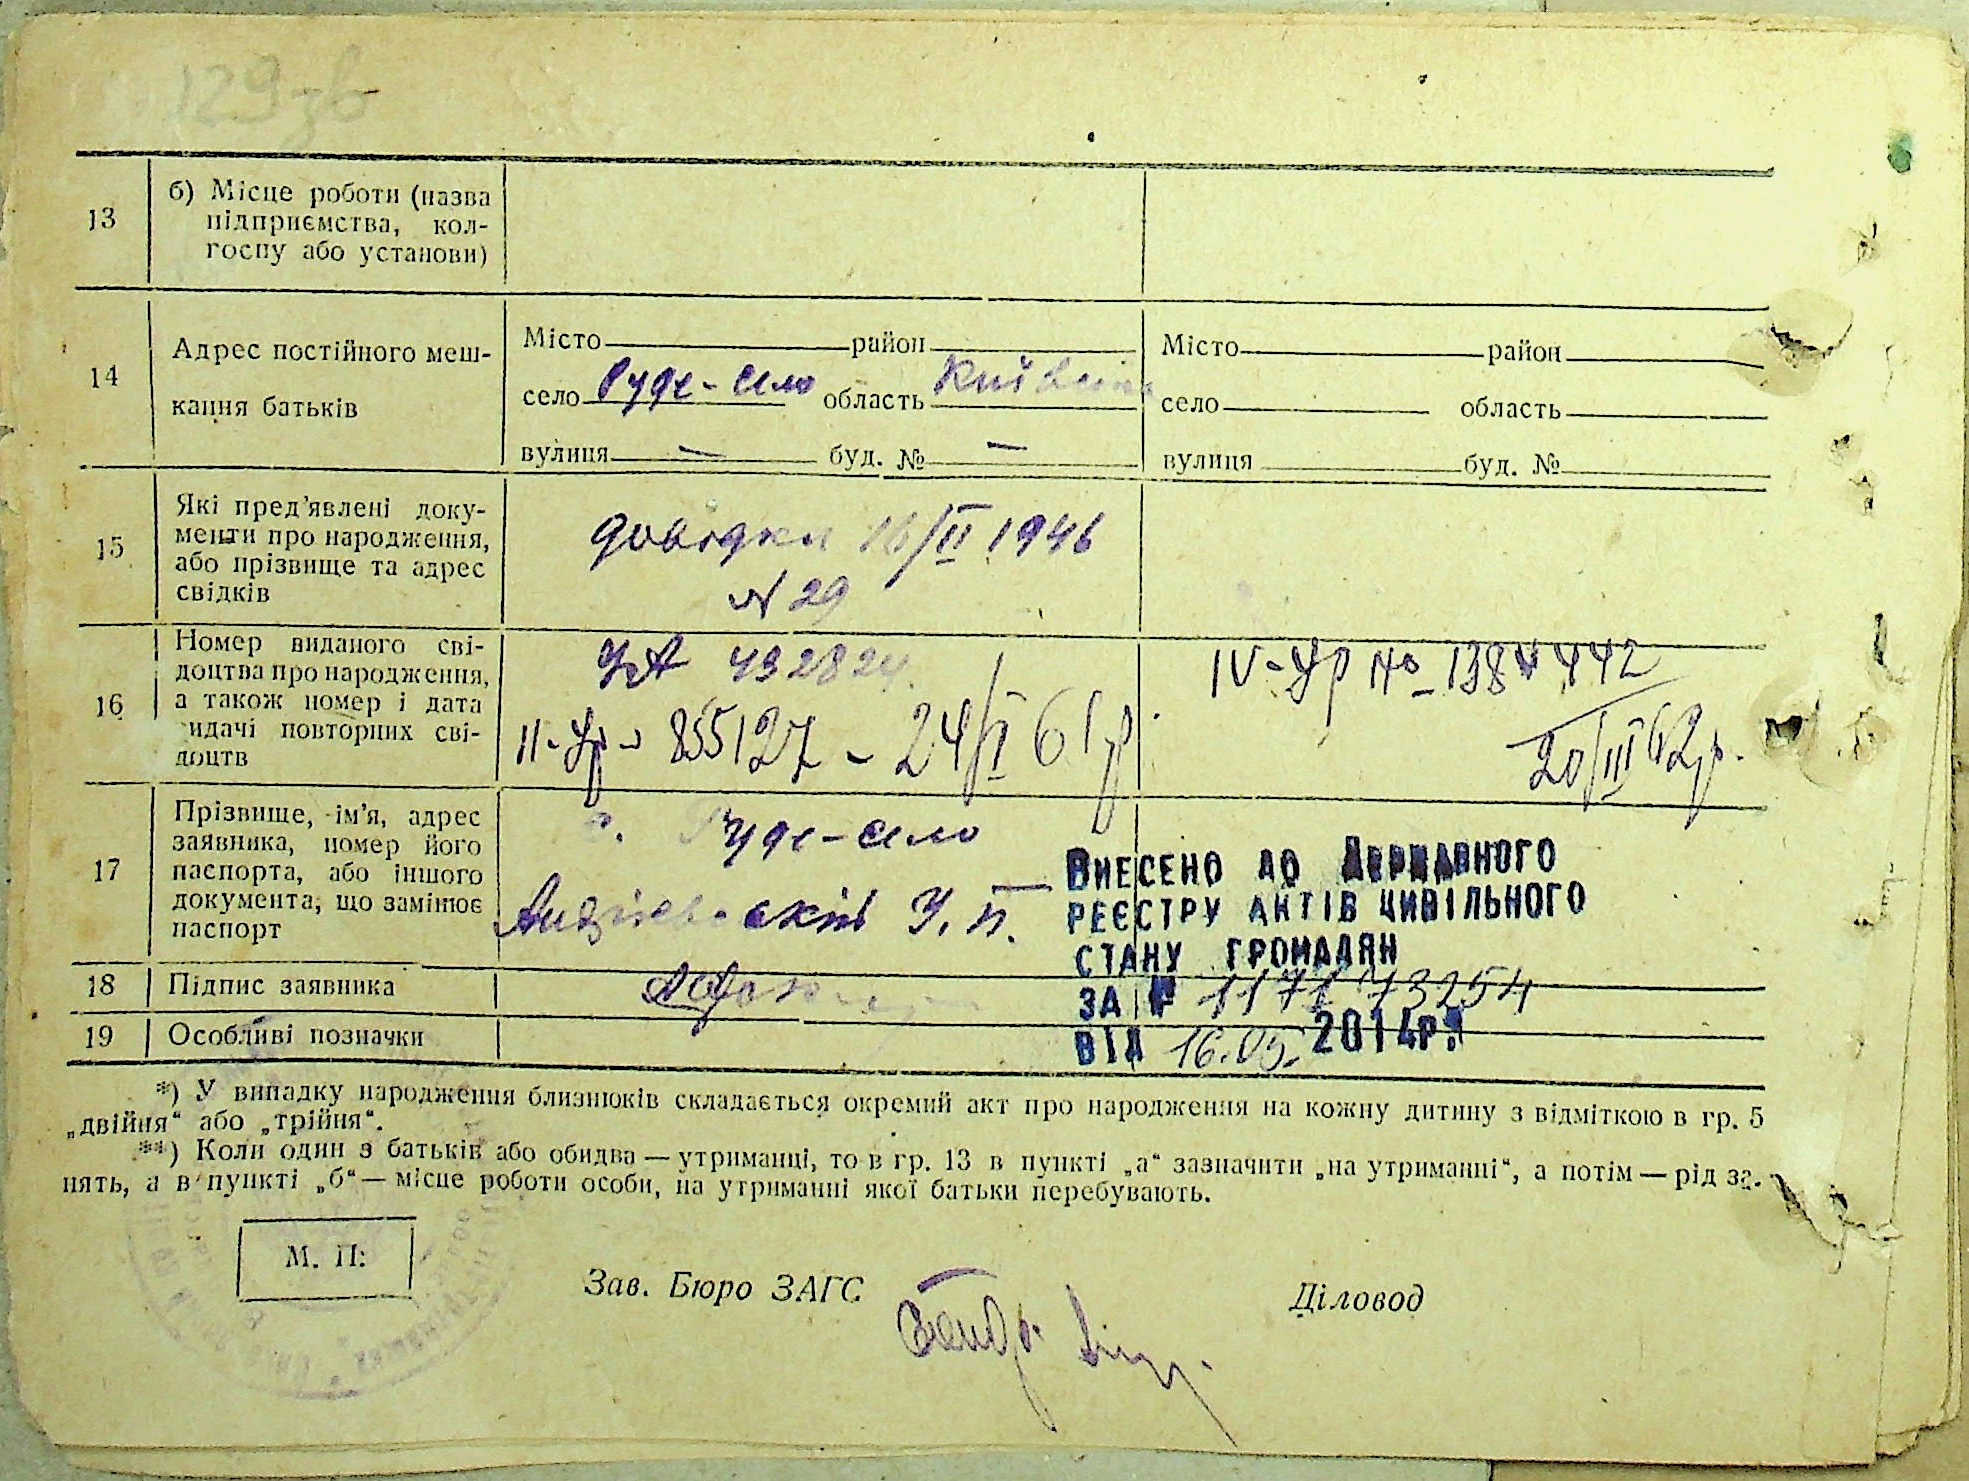 129 зв
13
б) Місце роботи (назва
підприємства, кол-
госпу або установи)
14
Адрес постійного меш-
кання батьків
Місто район
село Руде-село область Київська
вулиця — буд. № —
Місто район
село область
вулиця буд. №
15
Які пред'явлені доку-
менти про народження,
або прізвище та адрес
свідків
довідка 16/II 1946
N 29
16
Номер виданого сві-
доцтва про народження,
а також номер і дата
видачі повторних сві-
доцтв
432824
II-УР 855127 - 24/I 61 р.
IV-УР № 138 442
20/III 62 р.
17
Прізвище, ім'я, адрес
заявника, номер його
паспорта, або іншого
документа, що замінює
паспорт
с. Руде-село
18
Підпис заявника
19
Особливі позначки
Внесено до Державного
реєстру актів цивільного
стану громадян
за № 1171 73254
від 16.05. 2014р.
*) У випадку народження близнюків складається окремий акт про народження на кожну дитину з відміткою в гр. 5
„двійня“ або „трійня“.
**) Коли один з батьків або обидва — утриманці, то в гр. 13 в пункті „а“ зазначити „на утриманні“, а потім — рід за-
нять, а в пункті „б“ — місце роботи особи, на утриманні якої батьки перебувають.
М. П:
Зав. Бюро ЗАГС
Діловод